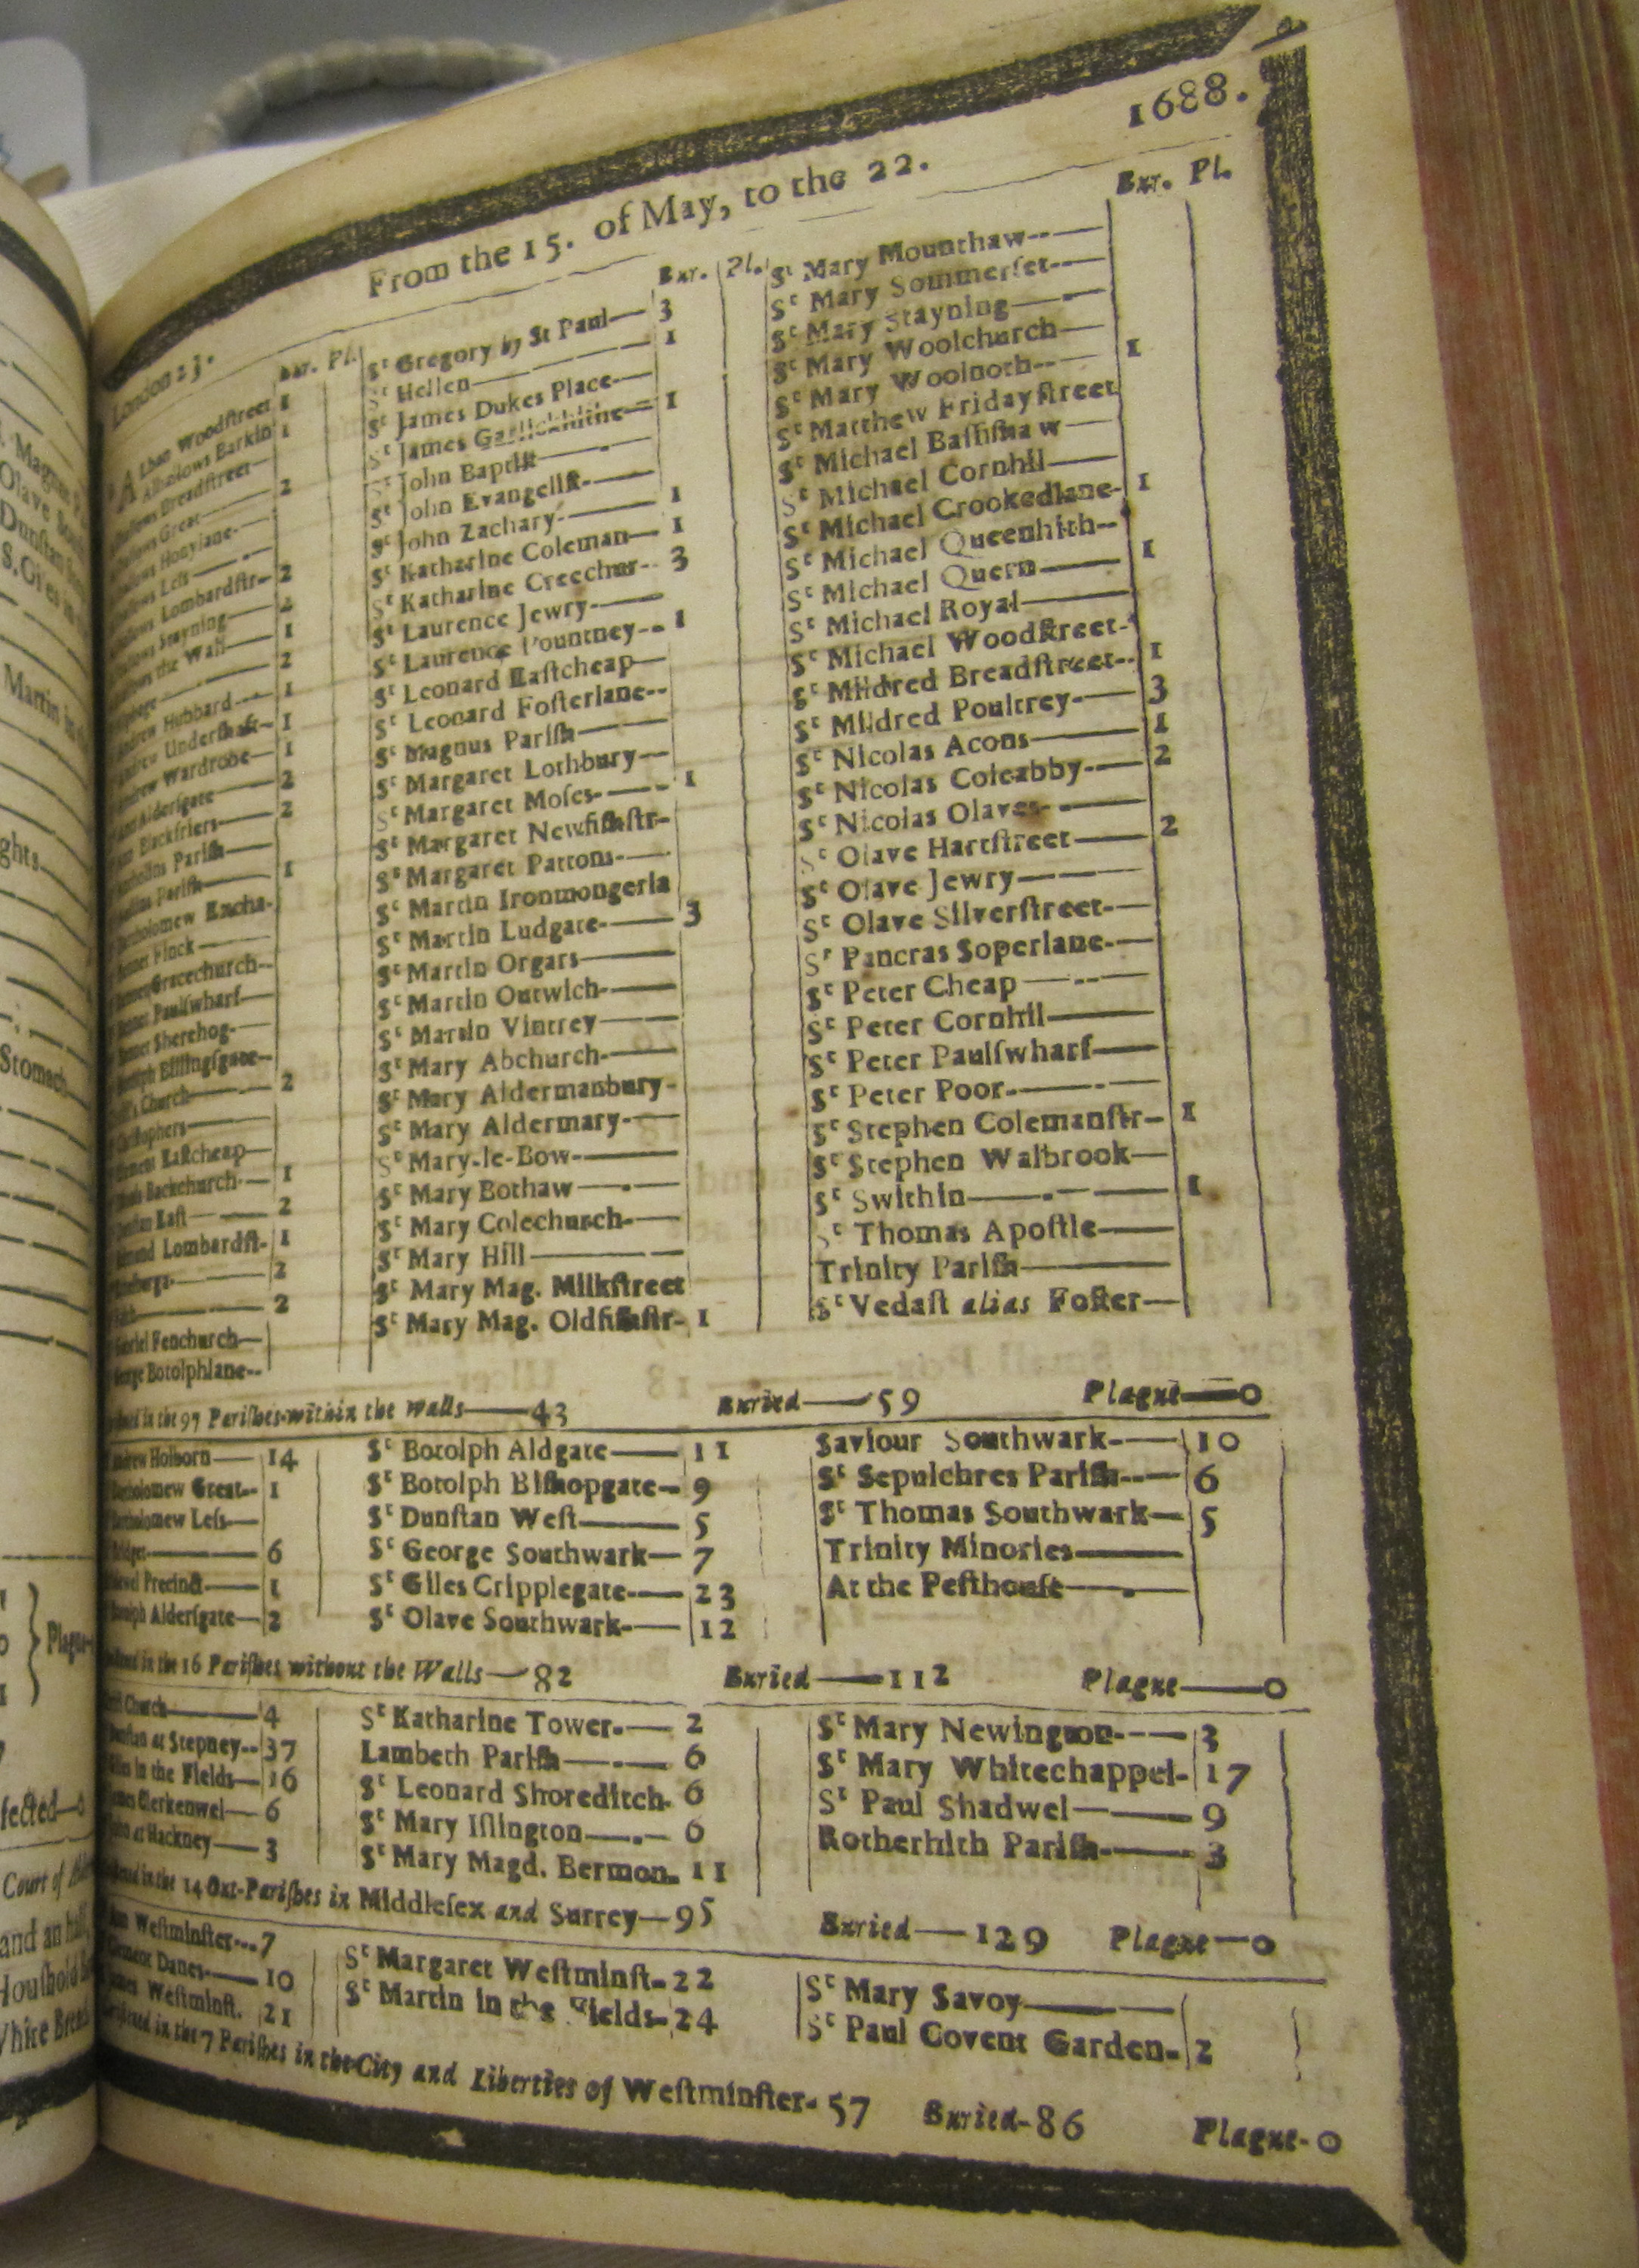 1688.
From the 15. of May, to the 22.
London 23.
Bur. Pl.
Alban Woodstreet 1
Alhallows Barkin 1
Breadstreet—
Great— 2
Honylane-
Less—
Lombardstr- 2
Stayning— 2
the Wall— 1
— 2
Andrew Hubbard— 1
Andrew Undershaft- 1
Andrew Wardrobe— 1
Ann Aldersgate— 2
Ann Blackfriers— 2
Parish—
Parish— 1
Bartholomew Excha-
Finck—
Gracechurch--
Paulſwharf—
Sherehog-—
Billingſgate—
Church— 2
Eaſtcheap—
Backchurch— 1
Eaſt— 2
Lombardſt- 1
— 2
— 2
Fenchurch—
Botolphlane--
Bur. Pl.
Sᵗ Gregory by St Paul— 3
Sᵗ Hellen— 1
Sᵗ James Dukes Place-—
Sᵗ James Garlickhithe— 1
Sᵗ John Baptiſt—
Sᵗ John Evangeliſt-—
Sᵗ John Zachary-— 1
Sᵗ Katharine Coleman— 1
Sᵗ Katharine Creechur-- 3
Sᵗ Laurence Jewry-—
Sᵗ Laurence Pountney-- 1
Sᵗ Leonard Eaſtcheap—
Sᵗ Leonard Foſterlane--
Sᵗ Magnus Pariſh—
Sᵗ Margaret Lothbury—
Sᵗ Margaret Moſes-—- 1
Sᵗ Margaret Newfiſhſtr-
Sᵗ Margaret Pattons-—
Sᵗ Martin Ironmongerla
Sᵗ Martin Ludgate-— 3
Sᵗ Martin Orgars—
Sᵗ Martin Outwich-—
Sᵗ Martin Vintrey—
Sᵗ Mary Abchurch-—
Sᵗ Mary Aldermanbury-
Sᵗ Mary Aldermary-—
Sᵗ Mary-le-Bow-—
Sᵗ Mary Bothaw—
Sᵗ Mary Colechurch-—
Sᵗ Mary Hill—
Sᵗ Mary Mag. Milkſtreet
Sᵗ Mary Mag. Oldfiſhſtr- 1
Bur. Pl.
Sᵗ Mary Mounthaw--—
Sᵗ Mary Sommerſet-—
Sᵗ Mary Stayning—
Sᵗ Mary Woolchurch—
Sᵗ Mary Woolnoth--— 1
Sᵗ Matthew Fridayſtreet
Sᵗ Michael Baſſiſhaw—
Sᵗ Michael Cornhil—
Sᵗ Michael Crookedlane- 1
Sᵗ Michael Queenhith--
Sᵗ Michael Quern— 1
Sᵗ Michael Royal—
Sᵗ Michael Woodſtreet-
Sᵗ Mildred Breadſtreet-- 1
Sᵗ Mildred Poultrey-— 3
Sᵗ Nicolas Acons— 1
Sᵗ Nicolas Coleabby-— 2
Sᵗ Nicolas Olaves-—
Sᵗ Olave Hartſtreet— 2
Sᵗ Olave Jewry—
Sᵗ Olave Silverſtreet-—
Sᵗ Pancras Soperlane-—
Sᵗ Peter Cheap—
Sᵗ Peter Cornhil—
Sᵗ Peter Paulſwharf—
Sᵗ Peter Poor-—
Sᵗ Stephen Colemanſtr— 1
Sᵗ Stephen Walbrook—
Sᵗ Swithin— 1
Sᵗ Thomas Apoſtle—
Trinity Pariſh—
Sᵗ Vedaſt alias Foſter—
in the 97 Pariſhes within the Walls—43 Buried—59 Plague—0
Andrew Holborn— 14
Bartholomew Great-- 1
Bartholomew Leſs—
Bridget— 6
Precinct— 1
Botolph Alderſgate— 2
Sᵗ Botolph Aldgate— 11
Sᵗ Botolph Biſhopgate— 9
Sᵗ Dunſtan Weſt— 5
Sᵗ George Southwark— 7
Sᵗ Giles Cripplegate-— 23
Sᵗ Olave Southwark-— 12
Saviour Southwark-— 10
Sᵗ Sepulchres Pariſh--— 6
Sᵗ Thomas Southwark— 5
Trinity Minories—
At the Peſthouſe—
in the 16 Pariſhes without the Walls—82 Buried—112 Plague—0
Church— 4
Dunſtan at Stepney-- 37
Giles in the Fields— 16
Clerkenwel— 6
at Hackney— 3
Sᵗ Katharine Tower-— 2
Lambeth Pariſh— 6
Sᵗ Leonard Shoreditch- 6
Sᵗ Mary Iſlington— 6
Sᵗ Mary Magd. Bermon- 11
Sᵗ Mary Newington-— 3
Sᵗ Mary Whitechappel- 17
Sᵗ Paul Shadwel— 9
Rotherhith Pariſh-— 3
in the 14 Out-Pariſhes in Middleſex and Surrey—95 Buried—129 Plague—0
Weſtminſter--- 7
Clement Danes-— 10
James Weſtminſt. 21
Sᵗ Margaret Weſtminſt- 22
Sᵗ Martin in the Fields- 24
Sᵗ Mary Savoy—
Sᵗ Paul Covent Garden- 2
in the 7 Pariſhes in the City and Liberties of Weſtminſter- 57 Buried-86 Plague-0